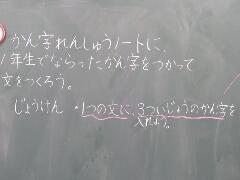 かん字れんしゅうノートに、
1年生でならったかん字をつかって
文をつくろう。
じょうけん ・1つの文に、3ついじょうのかん字を
入れよう。